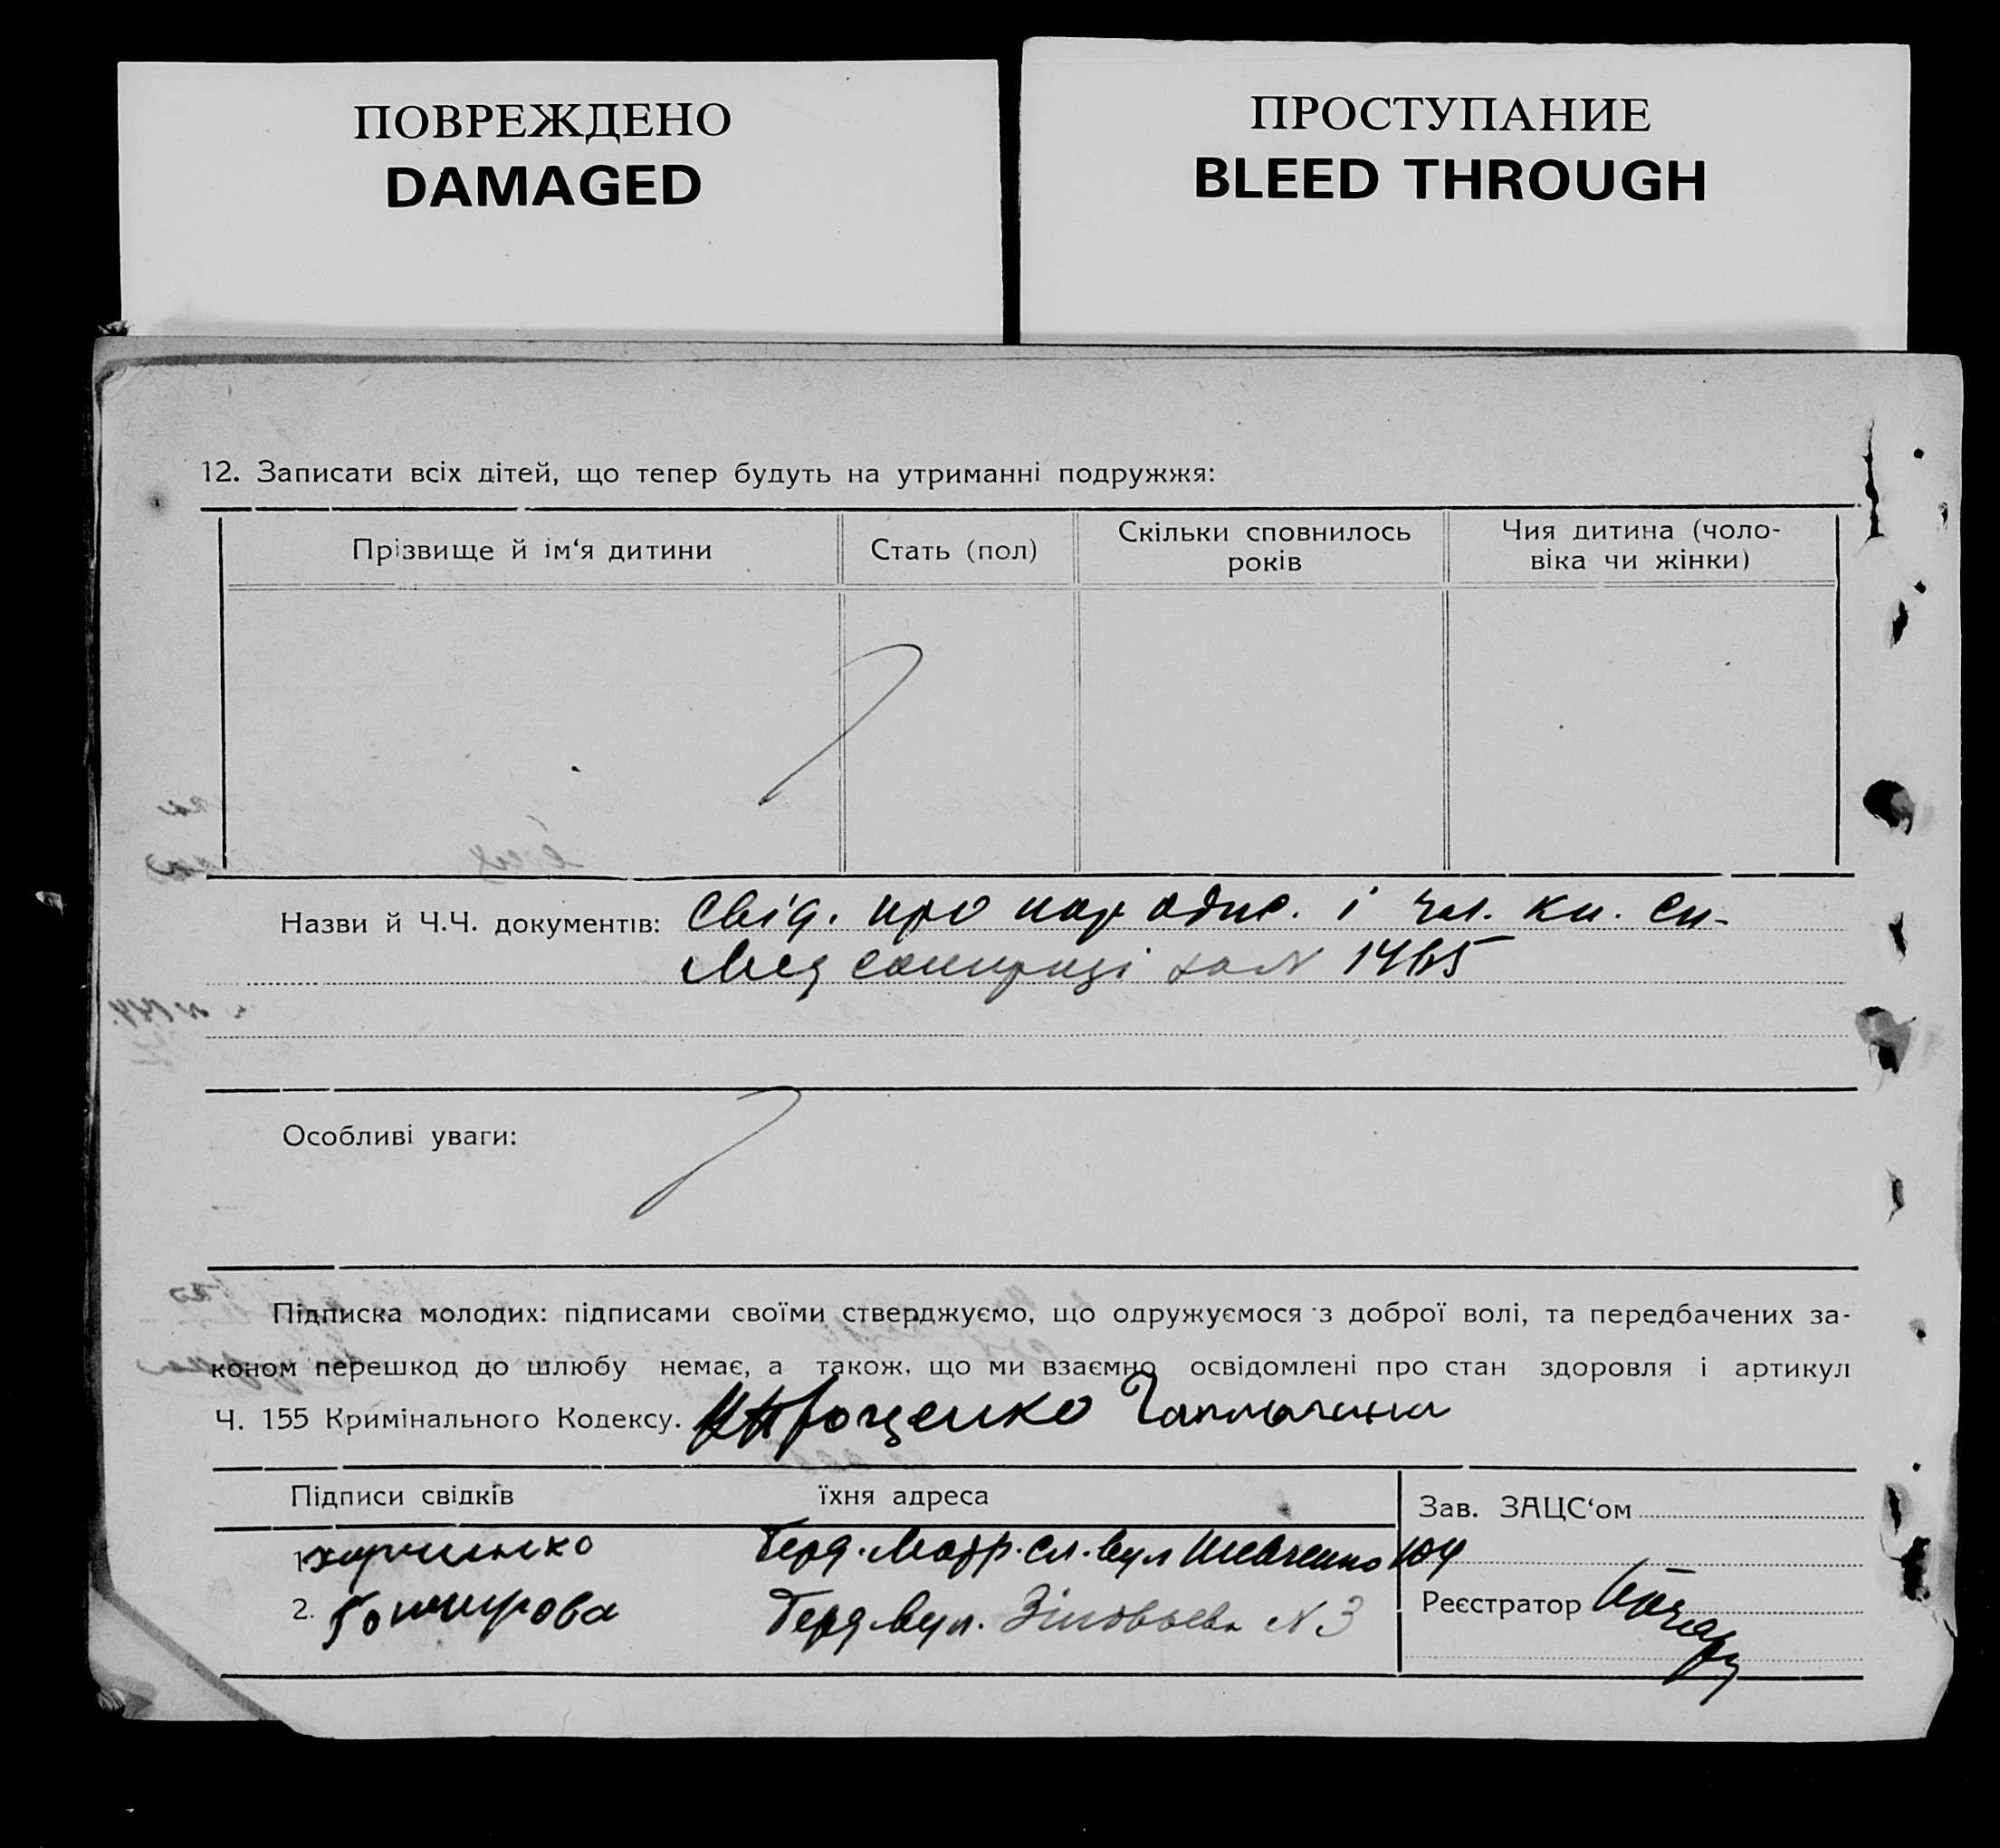 ПОВРЕЖДЕНО
DAMAGED
ПРОСТУПАНИЕ
BLEED THROUGH
12. Записати всіх дітей, що тепер будуть на утриманні подружжя:
Прізвище й ім‘я дитини
Стать (пол)
Скільки сповнилось
років
Чия дитина (чоло-
віка чи жінки)
Назви й Ч.Ч. документів: Свід. про народж. і чл. кн.
1465
Особливі уваги:
Підписка молодих: підписами своїми стверджуємо, що одружуємося з доброї волі, та передбачених за-
коном перешкод до шлюбу немає, а також, що ми взаємно освідомлені про стан здоровля і артикул
Ч. 155 Кримінального Кодексу.
Підписи свідків
їхня адреса
Зав. ЗАЦС‘ом
1. Харченко
Берд. сл. вул Шевченко 104
2.
Берд. вул. Зіновьева N 3
Реєстратор